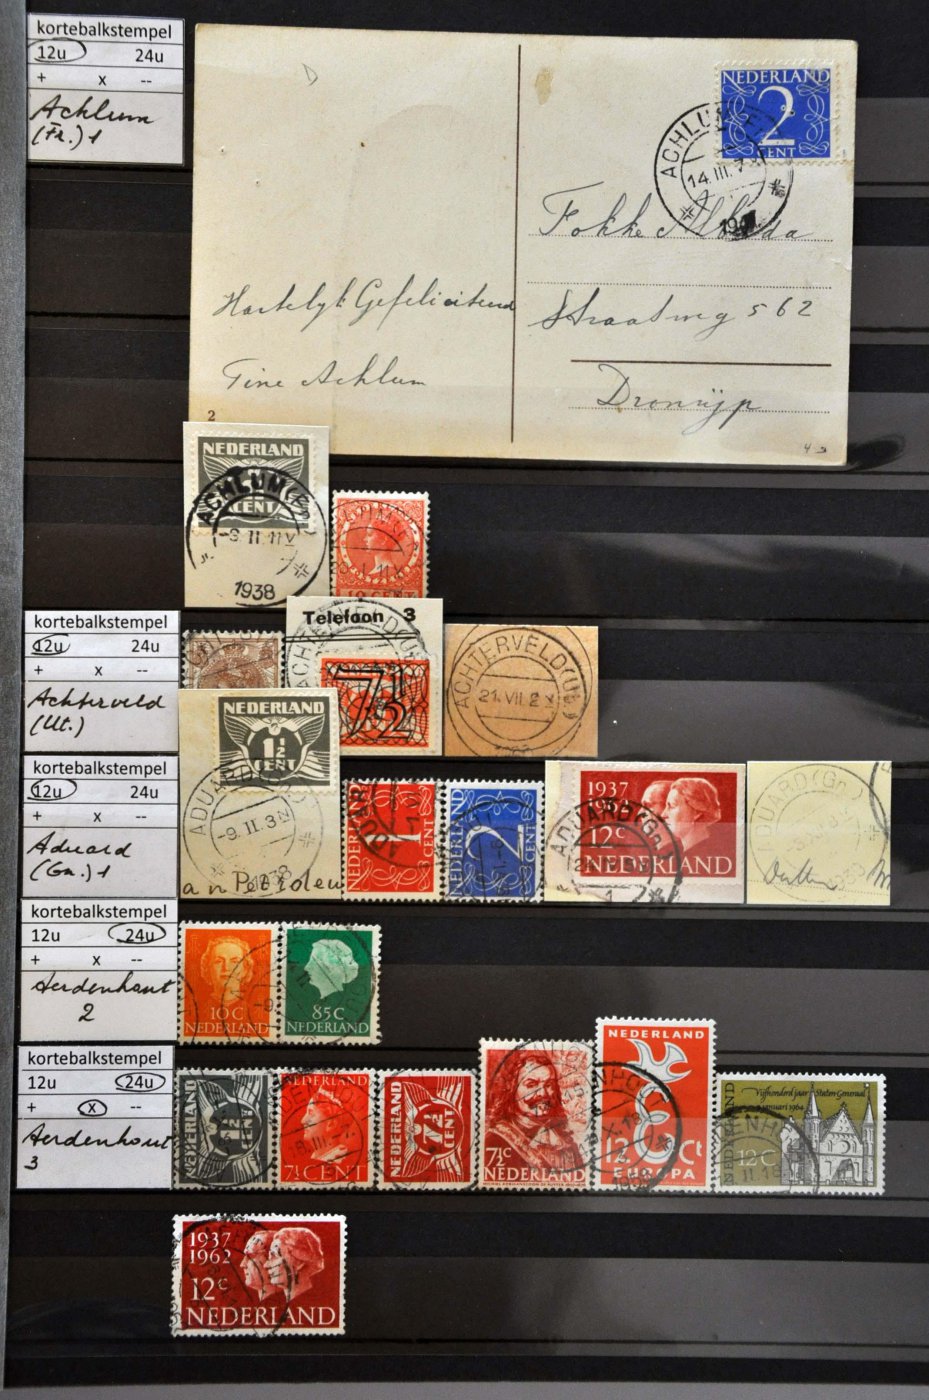 kortebalkstempel
12u 24u
+ x --
Achlum
(Fr.) 1
NEDERLAND
2
CENT
ACHLUM
14.III.
Fokke
Hartelijk Gefeliciteerd
Straatweg 562
Tine Achlum
Dronrijp
2
NEDERLAND
CENT
ACHLUM
1938
10 CENT
kortebalkstempel
12u 24u
+ x --
Achterveld
(Ut.)
Telefoon 3
7½
ACHTERVELD(Ut.)
21.VII.2
NEDERLAND
1½
CENT
ADUARD
-9.II.3N
1938
an Petroleu
kortebalkstempel
12u 24u
+ x --
Aduard
(Gn.) 1
NEDERLAND
1
CENT
NEDERLAND
2
CENT
1937
12c
NEDERLAND
ADUARD(Gn.)
1
ADUARD(Gn.)
kortebalkstempel
12u 24u
+ x --
Aerdenhout
2
10C
NEDERLAND
85C
NEDERLAND
kortebalkstempel
12u 24u
+ x --
Aerdenhout
3
NEDERLAND
NEDERLAND
7½CENT
NEDERLAND
7½
CENT
7½C
NEDERLAND
NEDERLAND
12 Ct
EUROPA
Vijfhonderd jaar Staten-Generaal
januari 1964
NEDERLAND
12C
1937
1962
12c
NEDERLAND